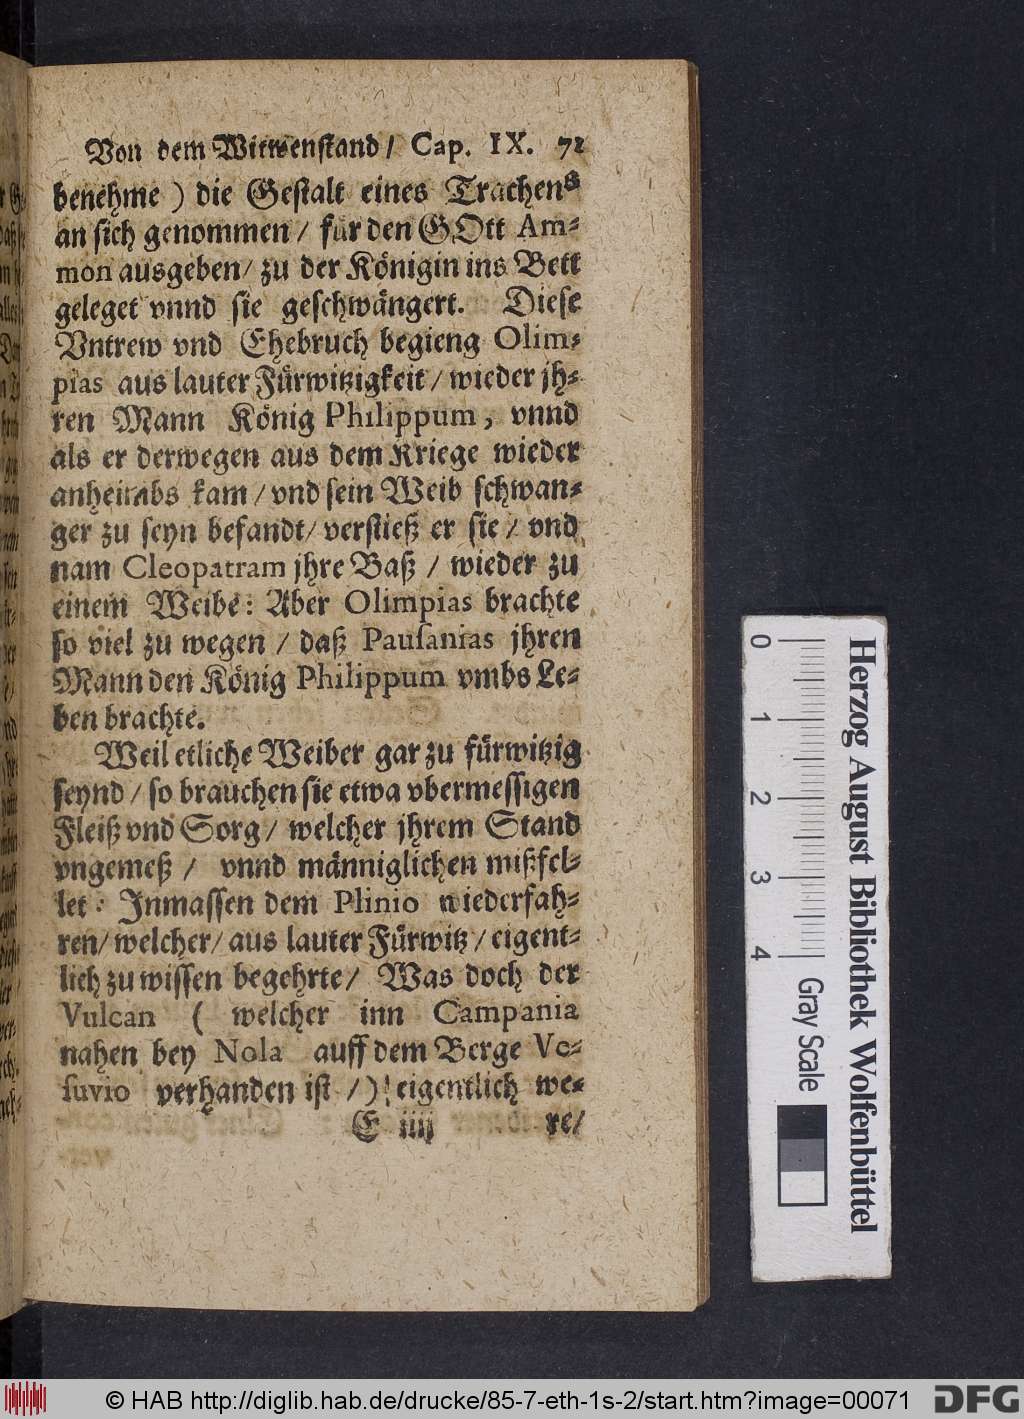 Von dem Witwenstand / Cap. IX. 71
benehme ) die Gestalt eines Trachens
an sich genommen / für den GOtt Am-
mon ausgeben / zu der Königin ins Bett
geleget vnnd sie geschwängert. Diese
Vntrew vnd Ehebruch begieng Olim-
pias aus lauter Fürwitzigkeit / wieder jh-
ren Mann König Philippum, vnnd
als er derwegen aus dem Kriege wieder
anheimbs kam / vnd sein Weib schwan-
ger zu seyn befandt / verstieß er sie / vnd
nam Cleopatram jhre Baß / wieder zu
einem Weibe: Aber Olimpias brachte
so viel zu wegen / daß Pauſanias jhren
Mann den König Philippum vmbs Le-
ben brachte.
Weil etliche Weiber gar zu fürwitzig
seynd / so brauchen sie etwa vbermessigen
Fleiß vnd Sorg / welcher jhrem Stand
vngemeß / vnnd männiglichen mißfel-
let: Inmassen dem Plinio wiederfah-
ren / welcher / aus lauter Fürwitz / eigent-
lich zu wissen begehrte / Was doch der
Vulcan ( welcher inn Campania
nahen bey Nola auff dem Berge Ve-
ſuvio verhanden ist / ) eigentlich we-
E iiij re /
Herzog August Bibliothek Wolfenbüttel
0 1 2 3 4 Gray Scale
© HAB http://diglib.hab.de/drucke/85-7-eth-1s-2/start.htm?image=00071 DFG